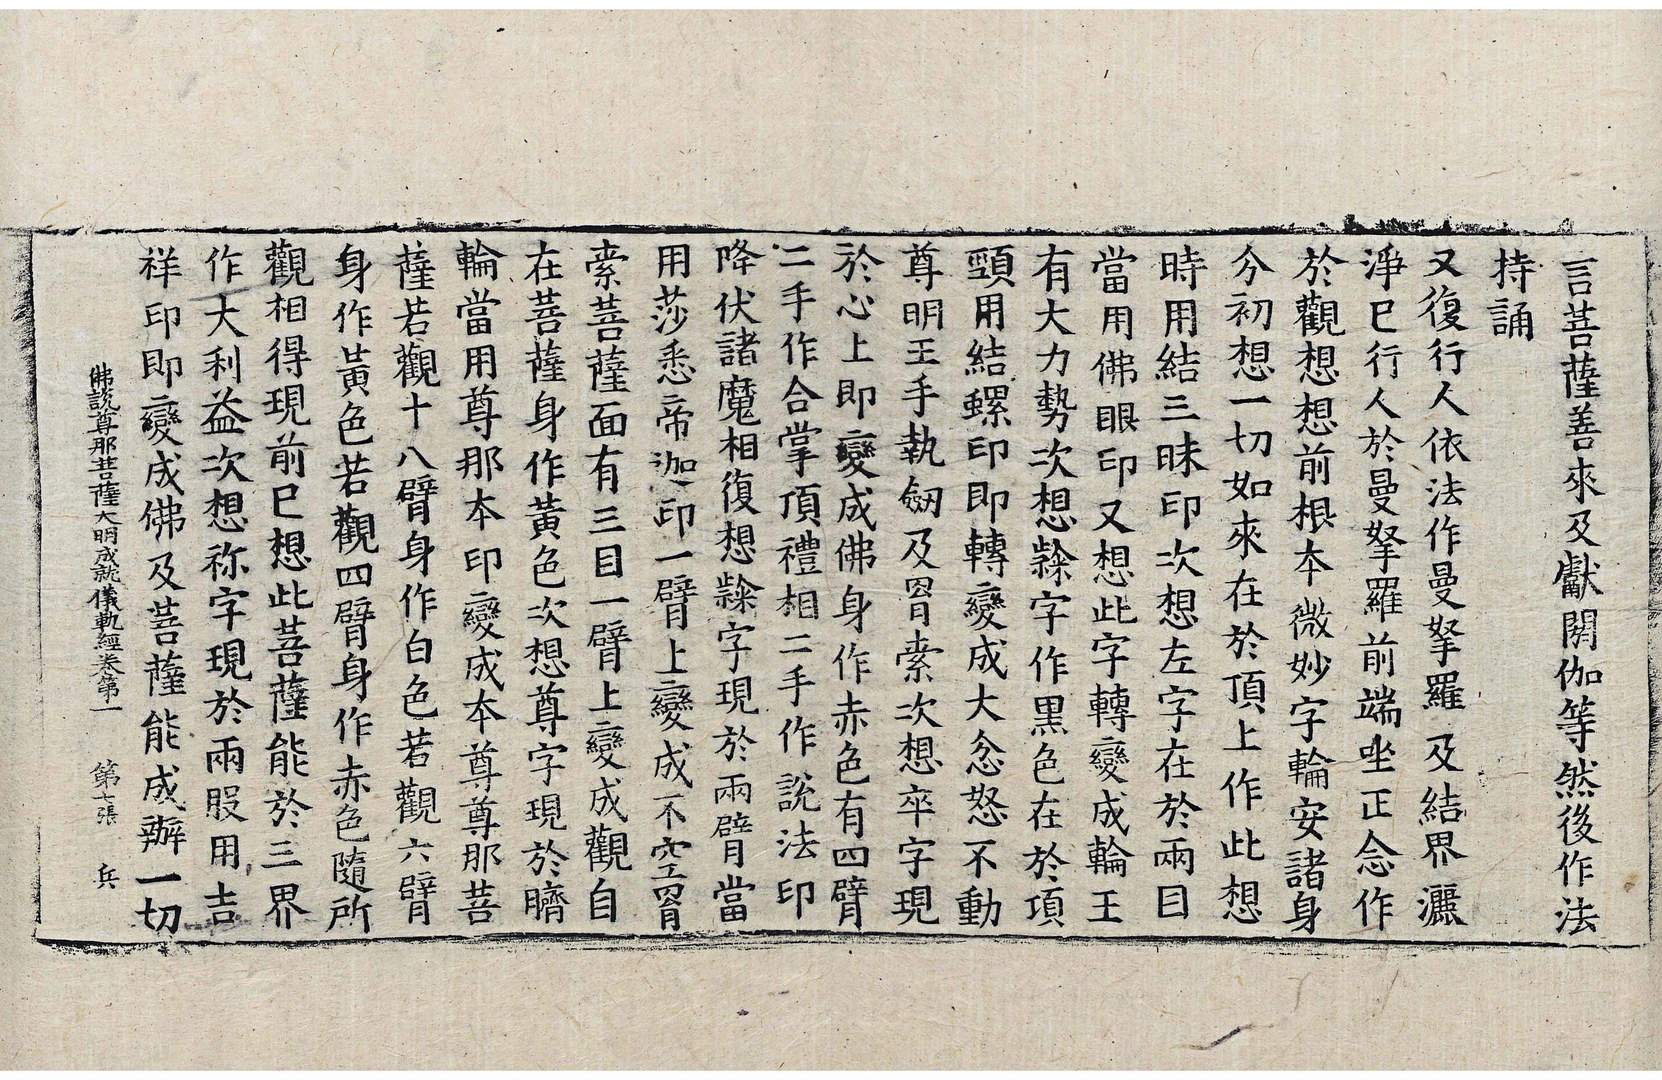 言菩薩善來及獻閼伽等然後作法
持誦
又復行人依法作曼拏羅及結界灑
淨已行人於曼拏羅前端坐正念作
於觀想想前根本微妙字輪安諸身
分初想一切如來在於頂上作此想
時用結三昧印次想左字在於兩目
當用佛眼印又想此字轉變成輪王
有大力勢次想隸字作黑色在於項
頸用結螺印即轉變成大忿怒不動
尊明王手執劒及罥索次想卒字現
於心上即變成佛身作赤色有四臂
二手作合掌頂禮相二手作說法印
降伏諸魔相復想隸字現於兩臂當
用莎悉帝迦印一臂上變成不空罥
索菩薩面有三目一臂上變成觀自
在菩薩身作黃色次想尊字現於臍
輪當用尊那本印變成本尊尊那菩
薩若觀十八臂身作白色若觀六臂
身作黃色若觀四臂身作赤色隨所
觀相得現前已想此菩薩能於三界
作大利益次想祢字現於兩股用吉
祥印即變成佛及菩薩能成辦一切
佛說尊那菩薩大明成就儀軌經卷第一 第一張 兵